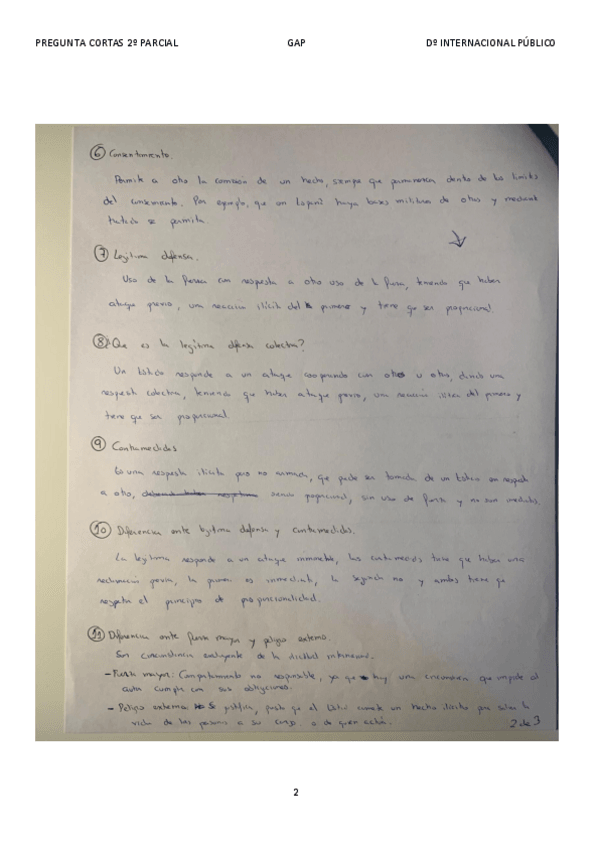 PREGUNTA CORTAS 2º PARCIAL GAP Dº INTERNACIONAL PÚBLICO
6 Consentimiento.
Permite a otro la comisión de un hecho, siempre que permanezca dentro de los límites
del consentimiento. Por ejemplo, que en España haya bases militares de otros y mediante
tratado se permita.
7 Legítima defensa.
Uso de la fuerza con respuesta a otro uso de la fuerza, teniendo que haber
ataque previo, una reacción ilícita del primero y tiene que ser proporcional.
8 ¿Que es la legítima defensa colectiva?
Un Estado responde a un ataque con otro u otros, dando una
respuesta colectiva, teniendo que haber ataque previo, una reacción ilícita del primero y
tiene que ser proporcional
9 Contramedidas
Es una respuesta ilícita pero no armada, que puede ser tomada de un Estado en respuesta
a otro, siendo proporcional, sin uso de fuerza y no son medidas
10 Diferencias entre legítima defensa y contramedidas.
La legítima responde a un ataque inminente, las contramedidas tiene que haber una
reclamación previa, la primera es inmediata, la segunda no y ambas tiene que
respetar el principio de proporcionalidad.
11 Diferencias entre fuerza mayor y peligro extremo.
Son circunstancias excluyente de la ilicitud internacional.
- Fuerza mayor: Comportamiento no responsable, ya que hay una circunstancia que impide al
autor cumplir con sus obligaciones.
- Peligro extremo: justifica, puesto que el Estado comete un hecho ilícito para salvar la
vida de las personas a su cargo o de quien actúa.
2 de 3
2